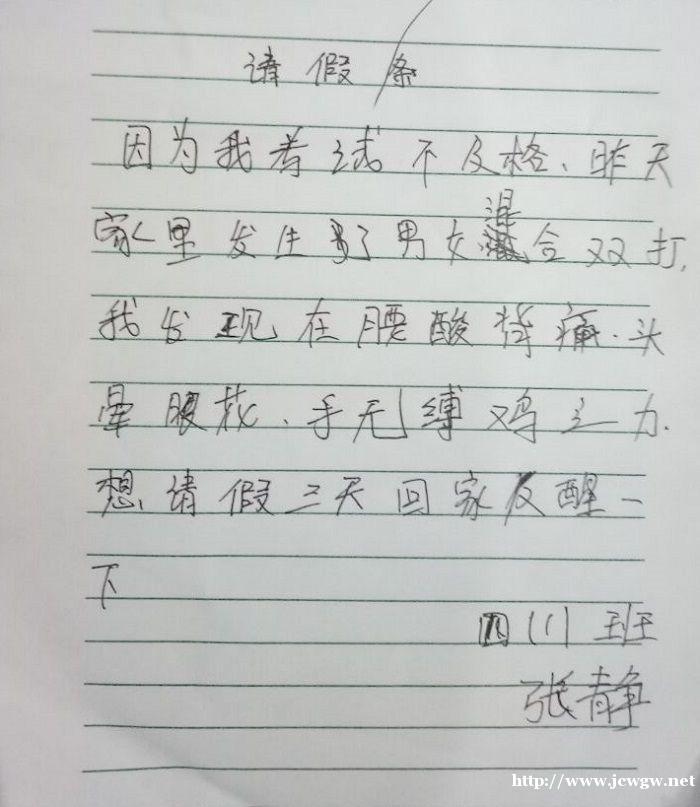 请假条
因为我考试不及格、昨天
家里发生了男女混合双打,
我发现在腰酸背痛.头
晕眼花、手无缚鸡之力.
想请假三天回家反醒一
下
四(1)班
张静
http://www.jcwgw.net